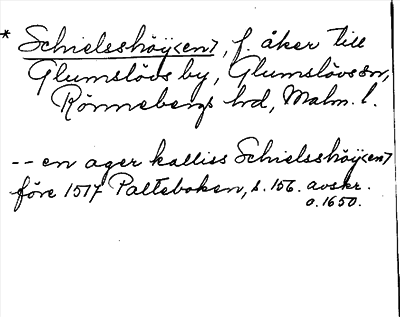 * Schielsshöÿ<en>, f. åker till
Glumslövs by, Glumslövs sn,
Rönnebergs hd, Malm. l.
-- en ager kalliss Schielsshöÿ<en>
före 1517 Palteboken, s. 156. avskr.
o. 1650.